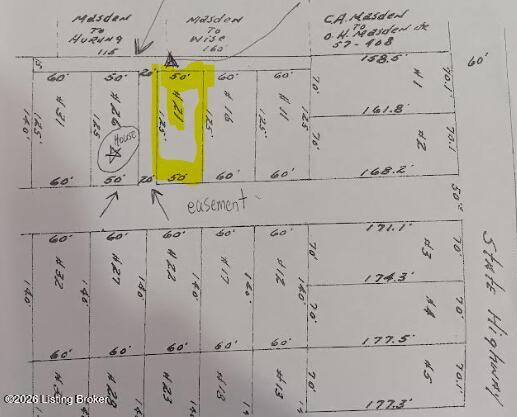 Masden To Hurung 115
Masden To Wise 160'
C.A. Masden To O.H. Masden Jr 57-408
15'
60'
50'
20'
50'
60'
60'
158.5'
60'
140'
125'
#31
125'
#26
House
125'
#21
125'
#16
125'
#11
70'
#1
70.1'
161.8'
70'
#2
70.1'
60'
50'
20'
50'
60'
60'
168.2'
easement
50'
60'
60'
60'
60'
60'
171.1'
140'
#32
140'
#27
140'
#22
140'
#17
140'
#12
140'
70'
#3
70'
174.3'
70'
#4
70'
State Highway
60'
60'
60'
60'
60'
177.5'
#28
#23
#18
#13
70'
#5
70.1'
177.3'
©2026 Listing Broker